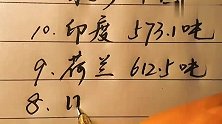 10. 印度 573.1吨
9. 荷兰 612.5吨
8.